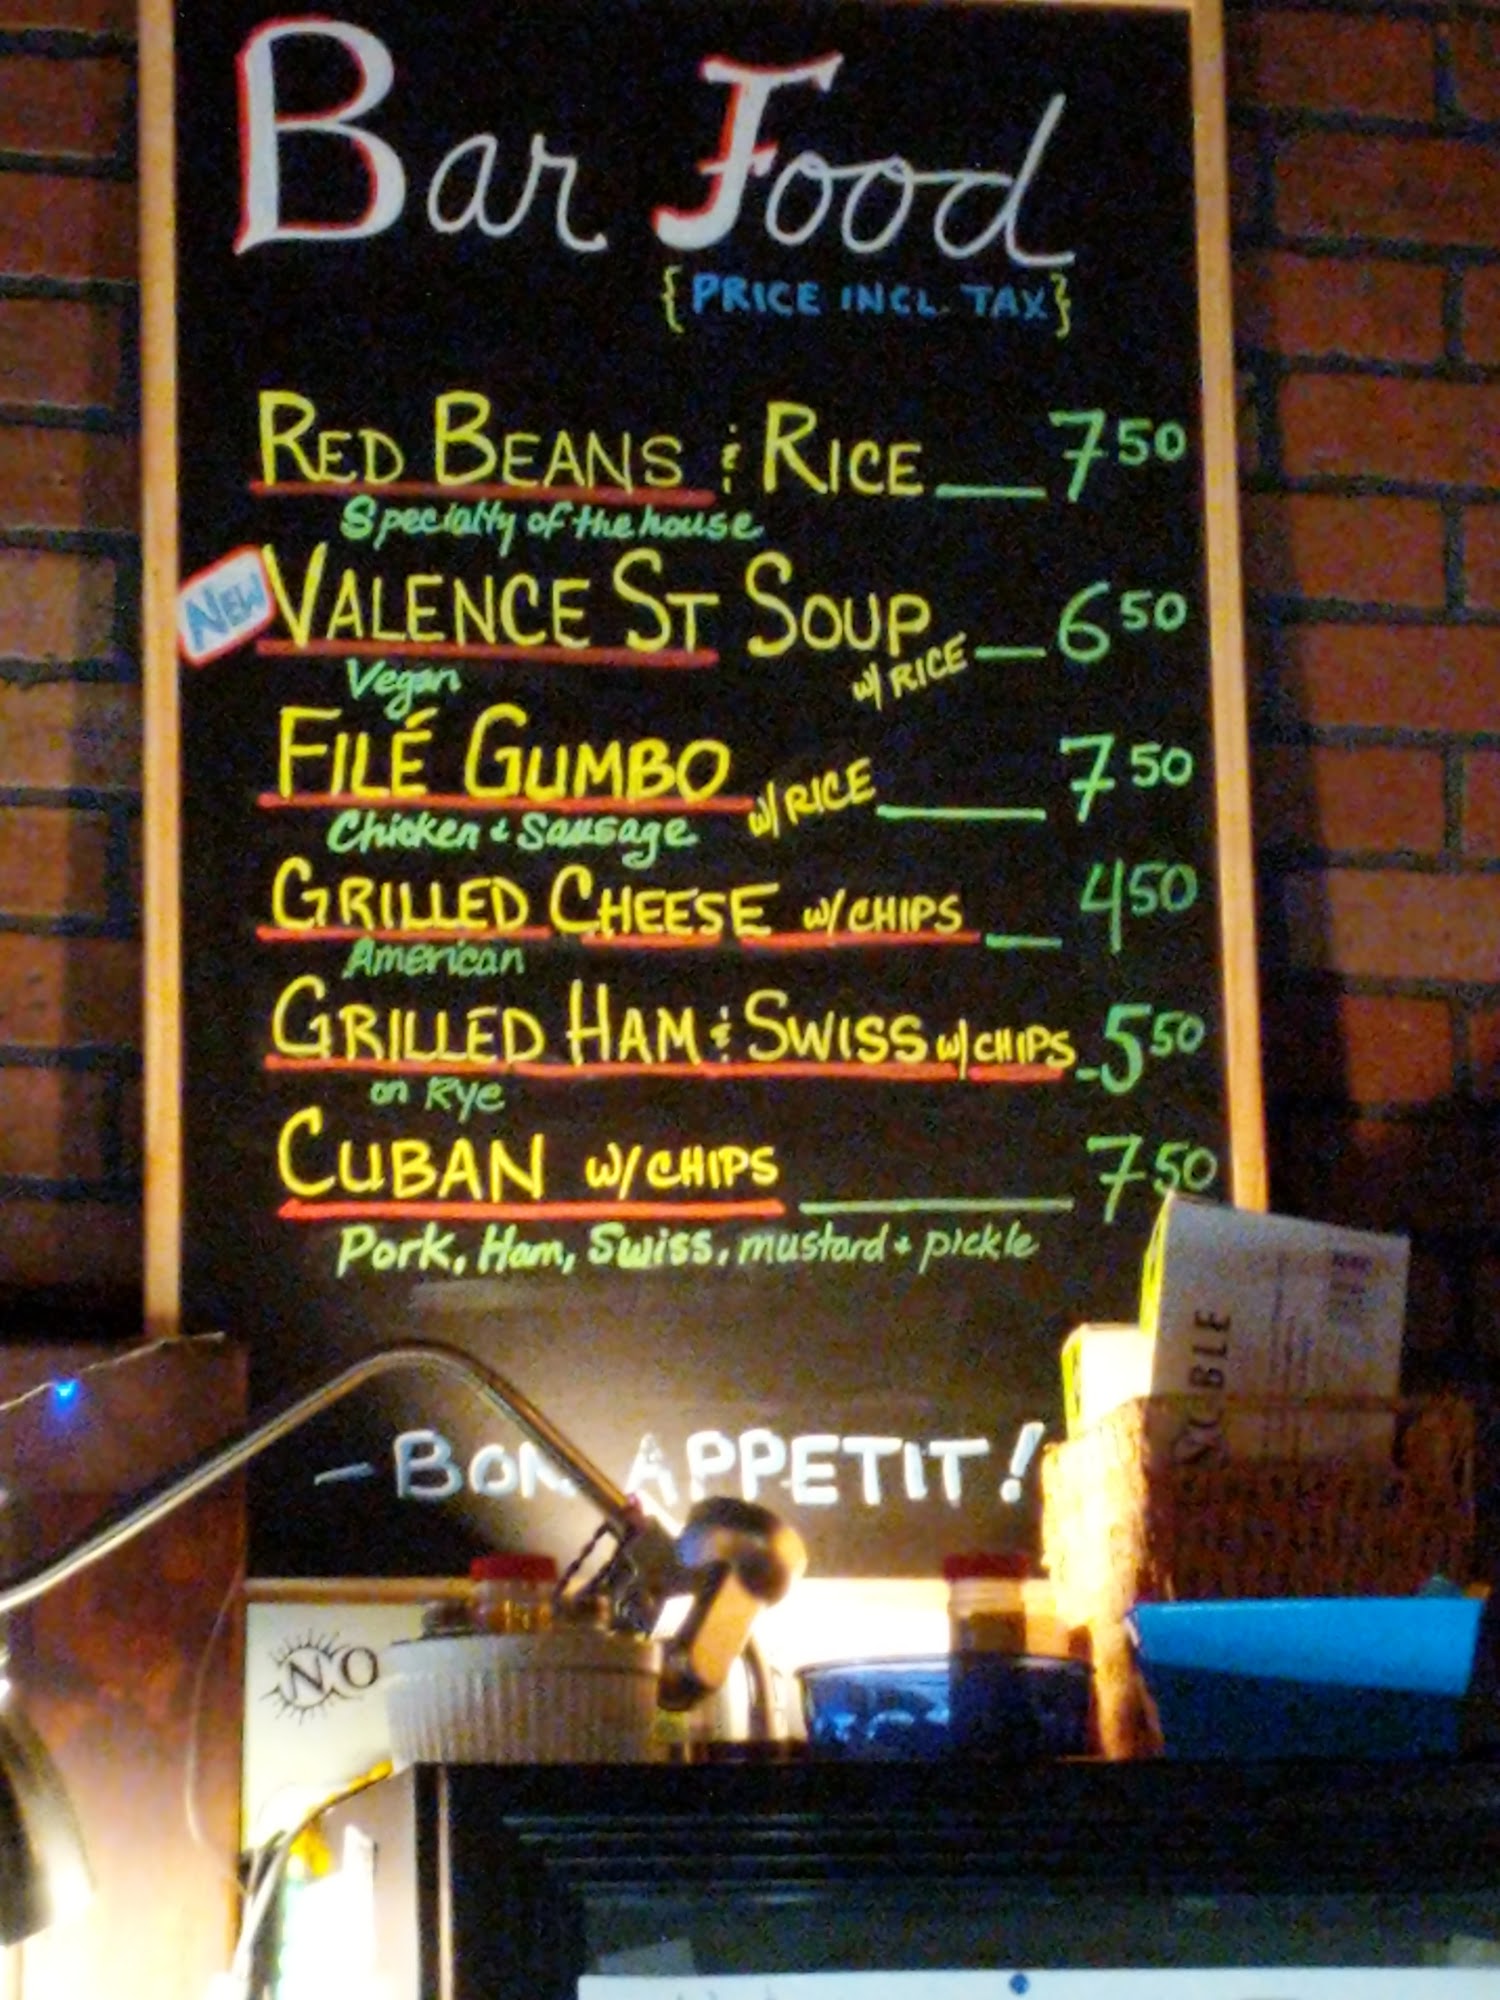 Bar Food
{PRICE INCL. TAX}
RED BEANS & RICE 7 50
Specialty of the house
NEW VALENCE ST SOUP w/ RICE 6 50
Vegan
FILÉ GUMBO w/ RICE 7 50
Chicken + Sausage
GRILLED CHEESE w/ CHIPS 4 50
American
GRILLED HAM & SWISS w/ CHIPS 5 50
on Rye
CUBAN w/ CHIPS 7 50
Pork, Ham, Swiss, mustard + pickle
- BON APPETIT!
NOBLE
NO